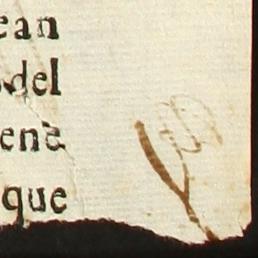 ean
del
enē
que